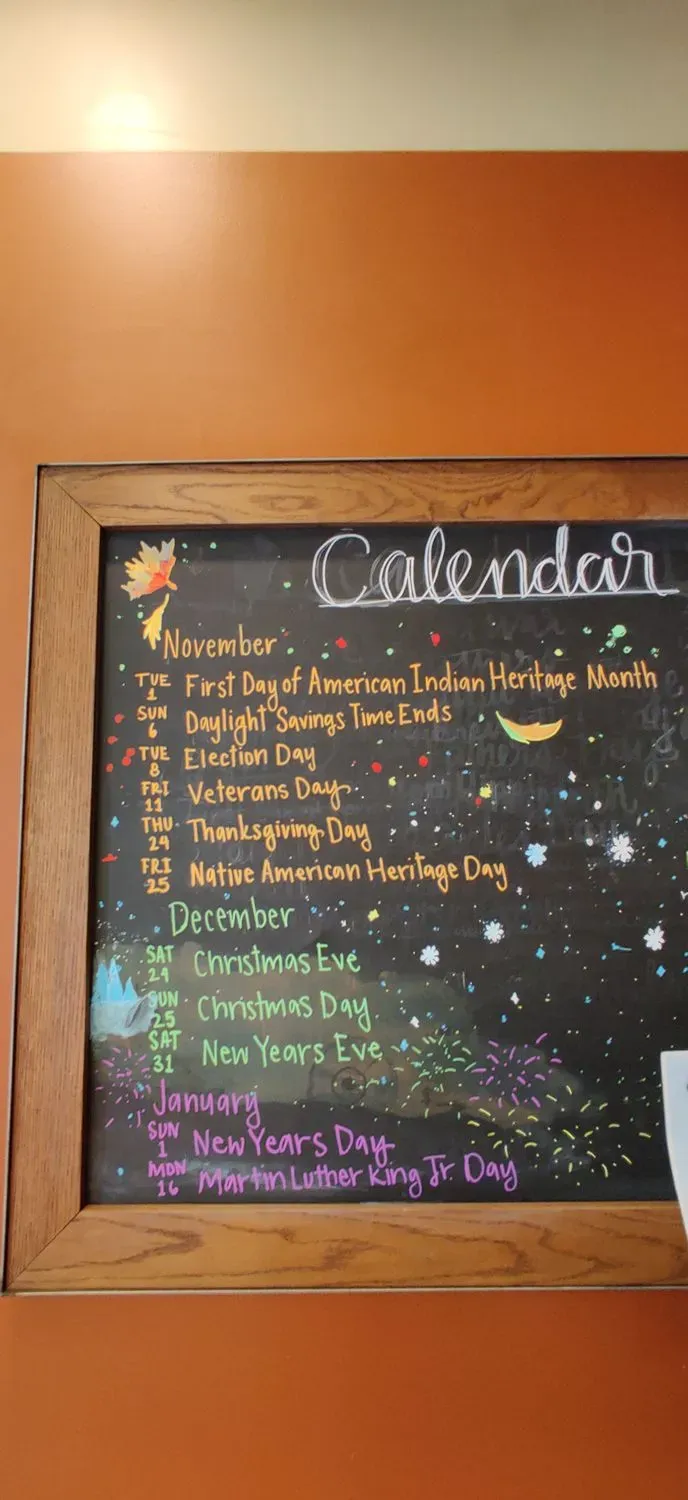 Calendar
November
TUE 1 First Day of American Indian Heritage Month
SUN 6 Daylight Savings Time Ends
TUE 8 Election Day
FRI 11 Veterans Day
THU 24 Thanksgiving Day
FRI 25 Native American Heritage Day
December
SAT 24 Christmas Eve
SUN 25 Christmas Day
SAT 31 New Years Eve
January
SUN 1 New Years Day
MON 16 Martin Luther King Jr. Day